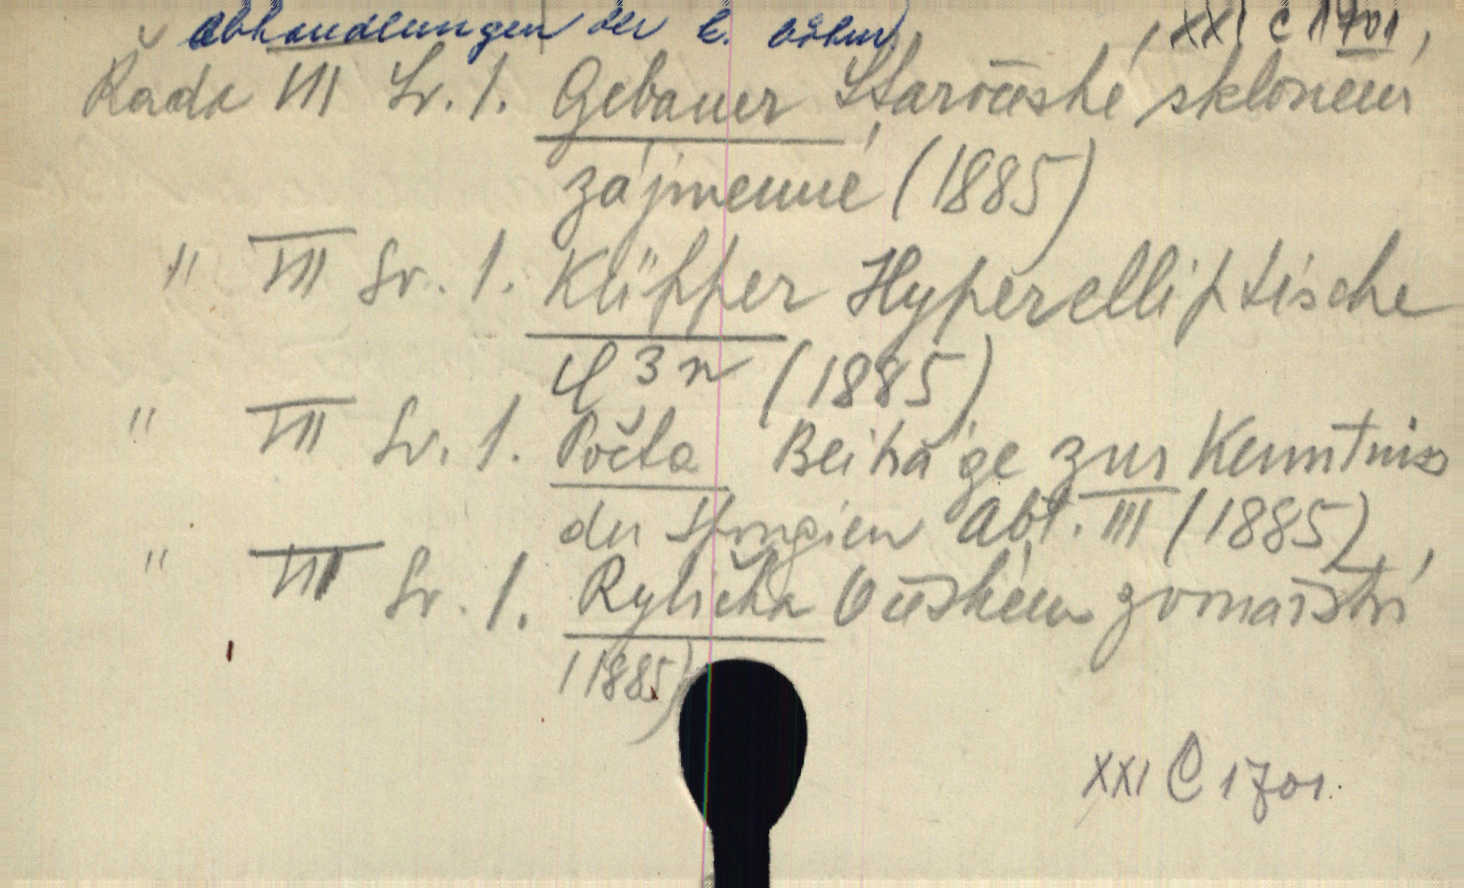 Abhandlungen der k. böhm. XXI C 1701
Řada VII Sv. 1. Gebauer Staročeské sklonění
zájmenné (1885)
" VII Sv. 1. Küpper Hyperelliptische
φ 3 n (1885)
" VII Sv. 1. Počta Beiträge zur Kenntniss
der Spongien Abt. III (1885)
" VII Sv. 1. Rylička O českém zvonařství
(1885)
XXI C 1701.